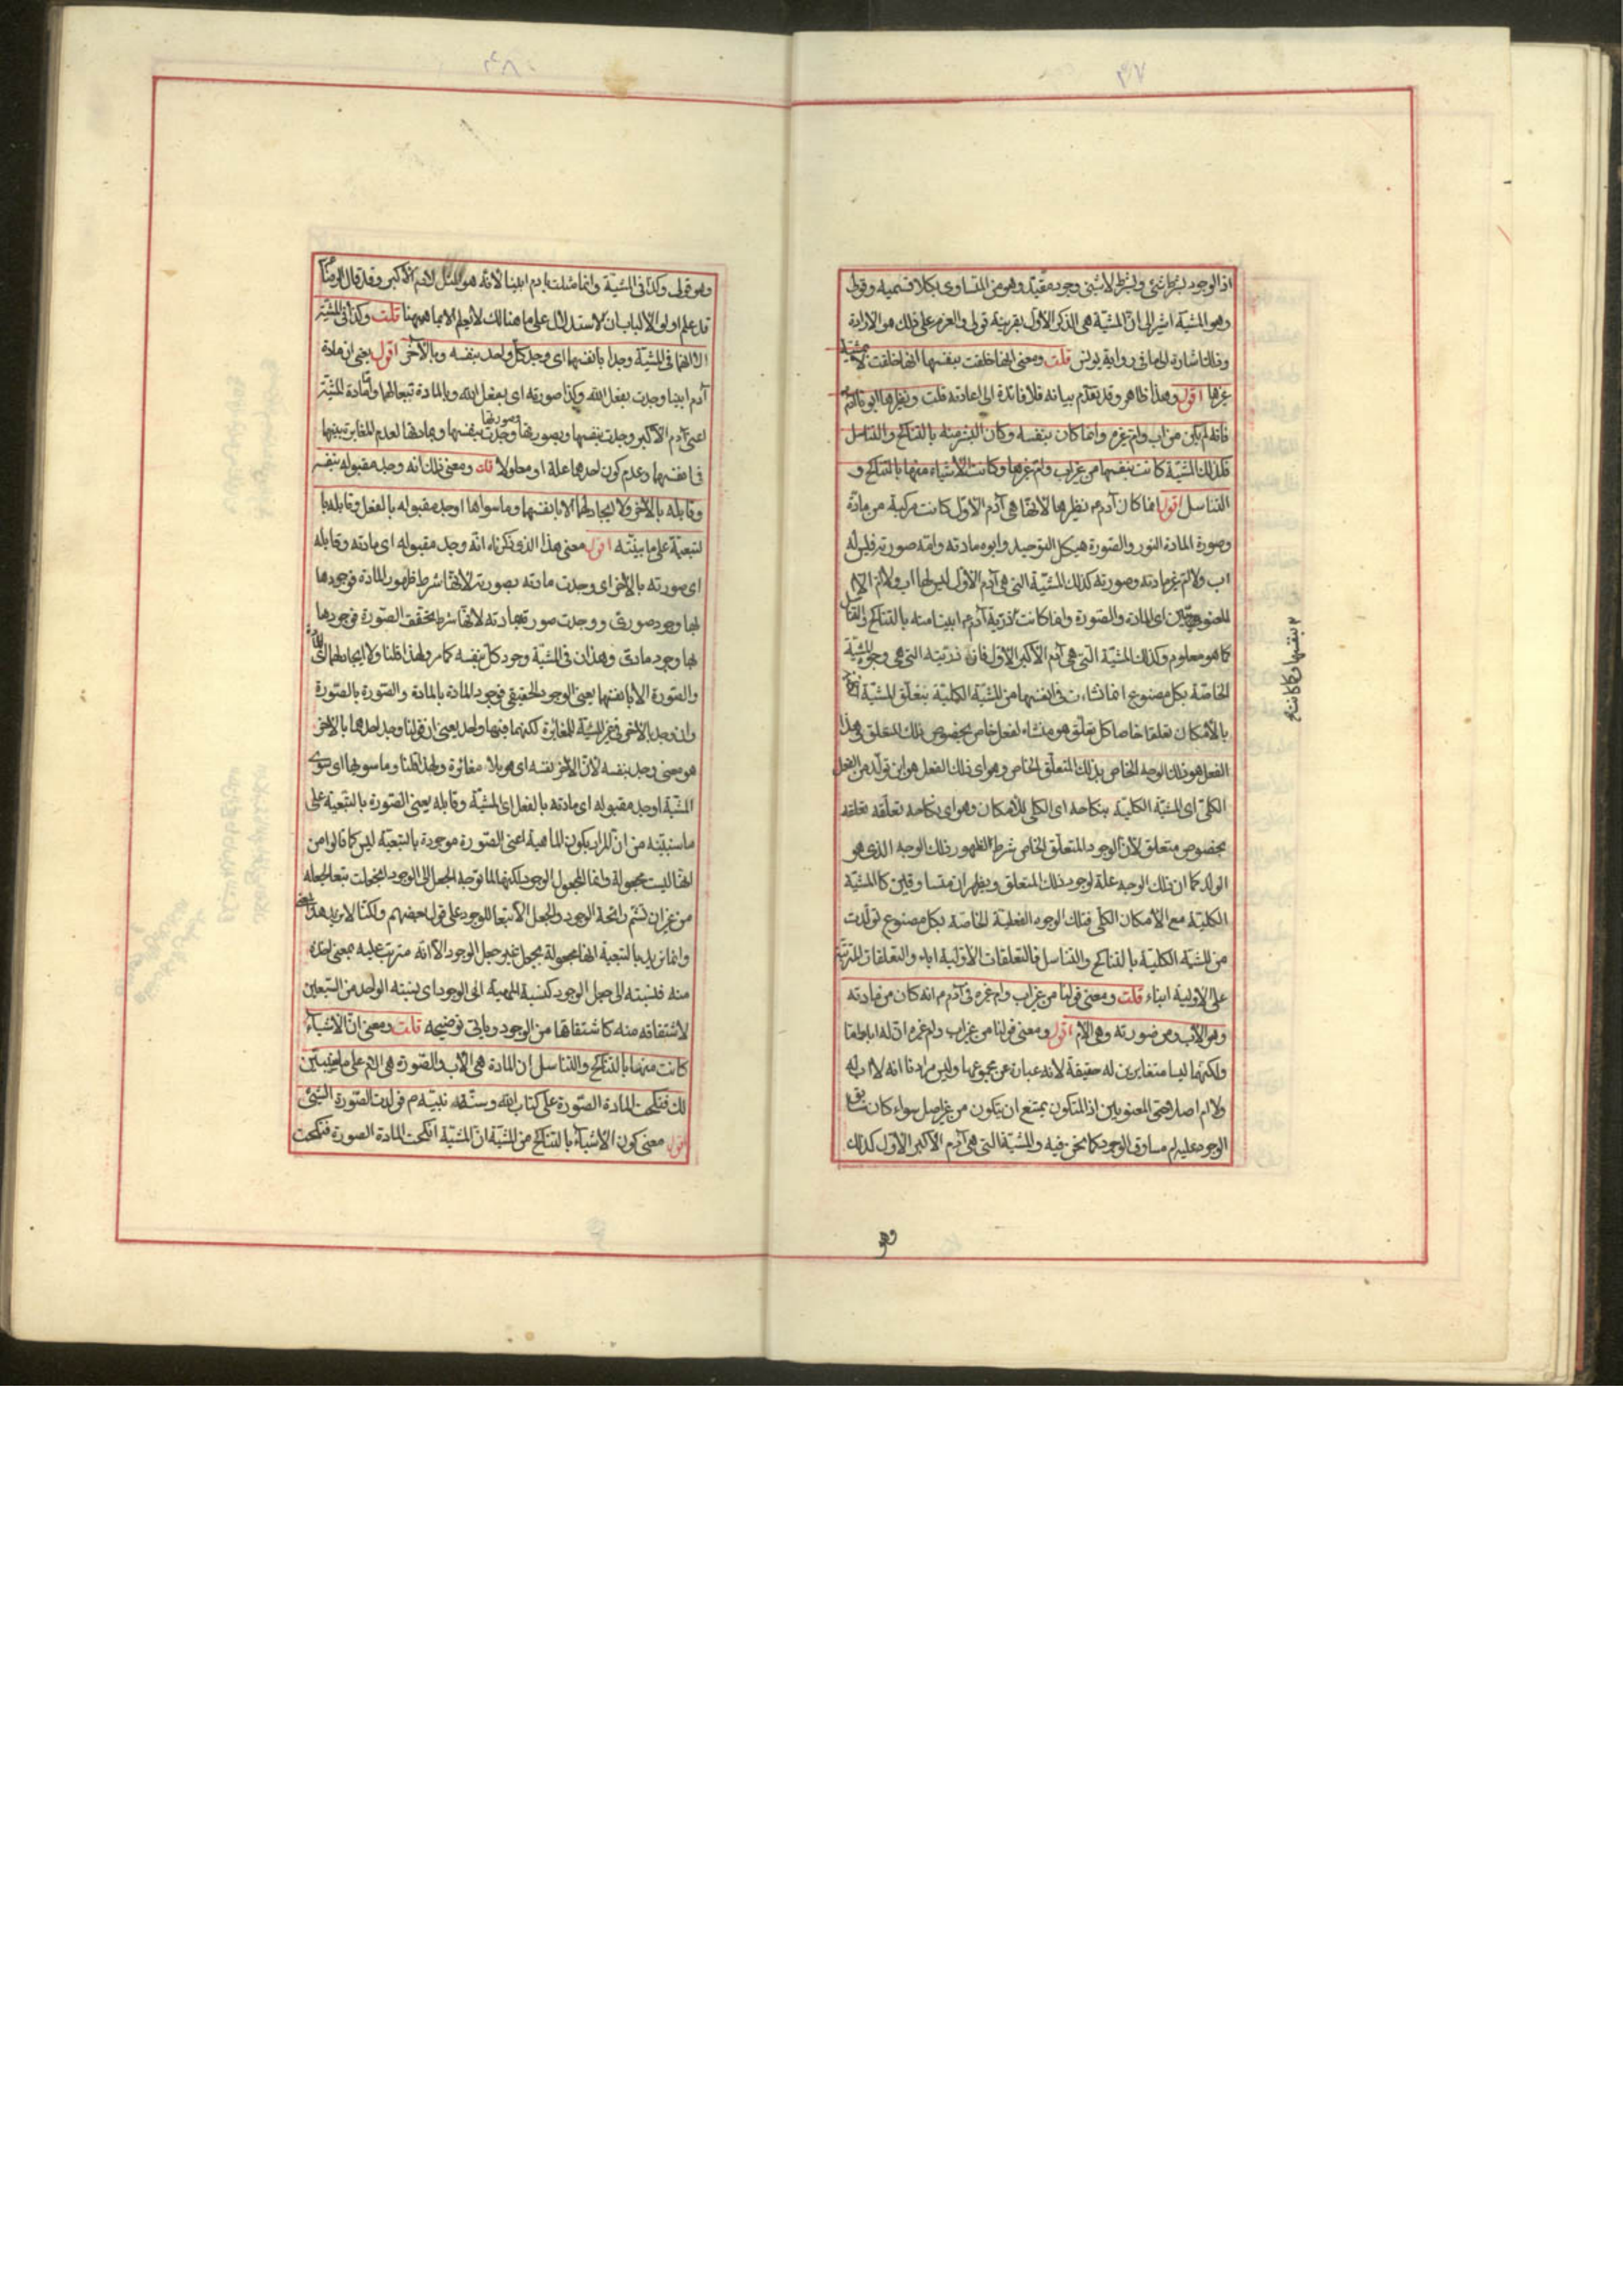 ٤٧
اذ الوجود بشرط شئ وبشرط لا شئ وجود مقيّد وهو من المتساوى بكلا قسميه وقولى
وهو المشية اشير الى انّ المشيّة هى الذكر الاوّل بقرينة قولى والعزم على ذلك هو الارادة
وذلك اشارة الى ما فى رواية يونس قلت ومعنى انها خلقت بنفسها انها خلقت لا بمشية
غيرها اقول وهذا ظاهر وقد تقدّم بيانه فلا فائدة الى اعادته قلت ونظيرها ابونا آدم
فانه لم يكن من اب وام غيره وانما كان بنفسه وكان البشر منه بالتناكح والتناسل
فكذلك المشيّة كانت بنفسها من غير اب وام غيرها وكانت الاشياء منها بالتناكح و
التناسل اقول انما كان آدم نظيرها لانها هى آدم الاوّل كانت مركبة من مادّة
وصورة المادة النور والصّورة هيكل التوحيد وابوه مادته وامّه صورته فليس له
اب ولا ام غير مادته وصورته كذلك المشيّة التى هى آدم الاوّل ليس لها اب ولا ام الا
المعنويين اى المادة والصّورة وانما كانت ذرّية آدم ابينا منه بالتناكح والتناسل
كما هو معلوم وكذلك المشيّة التى هى آدم الاكبر الاوّل فان ذرّيته التى هى وجوه المشيّة
الخاصّة بكل مصنوع انما نشاءت فى انفسها من المشيّة الكلية بتعلّق المشيّة
بالامكان تعلقا خاصا كل تعلّق هو منشاء لفعل خاص بخصوص ذلك المتعلق وهذا
الفعل هو ذلك الوجه الخاص بذلك المتعلّق الخاص وهو اى ذلك الفعل هو ابن تولّد من الفعل
الكلى اى المشيّة الكليّة بنكاحه اى الكلى للامكان وهو اى نكاحه تعلّقه تعلقه
بخصوص متعلق لأنّ الوجود المتعلّق الخاص شرط لظهور ذلك الوجه الذى هو
الولد كما ان ذلك الوجه علة لوجود ذلك المتعلق ويظهران متساوقين كالمشيّة
الكليّة مع الأمكان الكلّى فتلك الوجوه الفعليّة الخاصّة بكل مصنوع تولّدت
من المشيّة الكليّة بالتناكح والتناسل فالتعلقات الاوّلية اباء والتعلقات المترتبة
على الاولية ابناء قلت ومعنى قولنا من غير اب وام غيره فى آدم انه كان من مادته
وهو الاب ومن صورته وهى الام اقول ومعنى قولنا من غير اب وام غيره ان له ابا واما
ولكنهما ليسا متغايرين له حقيقة لانه عبارة عن مجموعهما وليس مرادنا انه لا اب له
ولا ام اصلا حتى المعنويين اذ المتكون يمتنع ان يتكون من غير اصل سواء كان سابق
الوجود عليه ام مساوق الوجود كما نحن فيه والمشيّة التى هى آدم الاكبر الاوّل كذلك
بنفسها وكانت
وهو
٤٨
وهو قولى وكذا فى المشيّة وانما مثلت بآدم ابينا لانه هو المثل لآدم الاكبر وقد قال الرضا
قد علم اولوا الالباب ان الاستدلال على ما هنالك لا يعلم الا بما هيهنا قلت وكذا فى المشيّة
الا انهما فى المشيّة وجدا بانفسهما اى وجد كل واحد بنفسه وبالآخر اقول يعنى ان مادة
آدم ابينا وجدت بفعل الله وكذا صورته اى بفعل الله وبالمادة تبعا لها وامّا مادة المشيّة
اعنى آدم الاكبر وجدت بنفسها وبصورتها وصورتها وجدت بنفسها وبمادتها لعدم المغايرة بينهما
فى انفسهما وعدم كون احدهما علة او معلولا قلت ومعنى ذلك انه وجد مقبوله بنفسه
وقابله بالآخر ولا ايجاد لهما الا بانفسهما وما سواها اوجد مقبوله بالفعل وقابله با
لتبعيّة على ما بيّنّه اقول معنى هذا الذى ذكرناه انّه وجد مقبوله اى مادته وقابله
اى صورته بالآخر اى وجدت مادته بصورته لانها شرط ظهور المادة فوجودها
بها وجود صورىّ ووجدت صورته بمادته لانها شرط تحقق الصّورة فوجودها
بها وجود مادىّ وهذان فى المشيّة وجود كل بنفسه كما مر ولهذا قلنا ولا ايجاد لهما اى المادة
والصّورة الا بانفسهما يعنى الوجود الحقيقى فوجود المادة بالمادة والصّورة بالصّورة
وان وجد بالآخر فى غير المشيّة للمغايرة لكنهما فيها واحد يعنى ان قولنا وجد احدهما بالآخر
هو معنى وجد بنفسه لانّ الآخر نفسه اى هو بلا مغائرة ولهذا قلنا وما سواها اى سوى
المشيّة اوجد مقبوله اى مادته بالفعل اى المشيّة وقابله يعنى الصّورة بالتبعيّة على
ما سنبيّنه من انّ المراد بكون الماهية اعنى الصّورة موجودة بالتبعيّة ليس كما قالوا من
انها ليست مجعولة وانما المجعول الوجود لكنها لما توجه الجعل الى الوجود انجعلت تبعا لجعله
من غير ان تشم رائحة الوجود والجعل الا تبعا للوجود على قول بعضهم ولكنّا لا نريد هذا المعنى
وانما نريد بالتبعية انها مجعولة بجعل غير جعل الوجود الا انه مترتب عليه بمعنى انه
منه فنسبته الى جعل الوجود كنسبة المهيّة الى الوجود اى نسبة الواحد من السّبعين
لاشتقاقه منه كاشتقاقها من الوجود وياتى توضيحه قلت ومعنى انّ الاشياء
كانت منهما بالتناكح والتناسل ان المادة هى الأب والصّورة هى الام على ما نبيّن
لك فنكحت المادة الصّورة على كتاب الله وسنّة نبيّه م فولدت الصّورة الشّئ
اقول معنى كون الاشياء بالتناكح من المشيّة انّ المشيّة انكحت المادة الصورة فنكحت